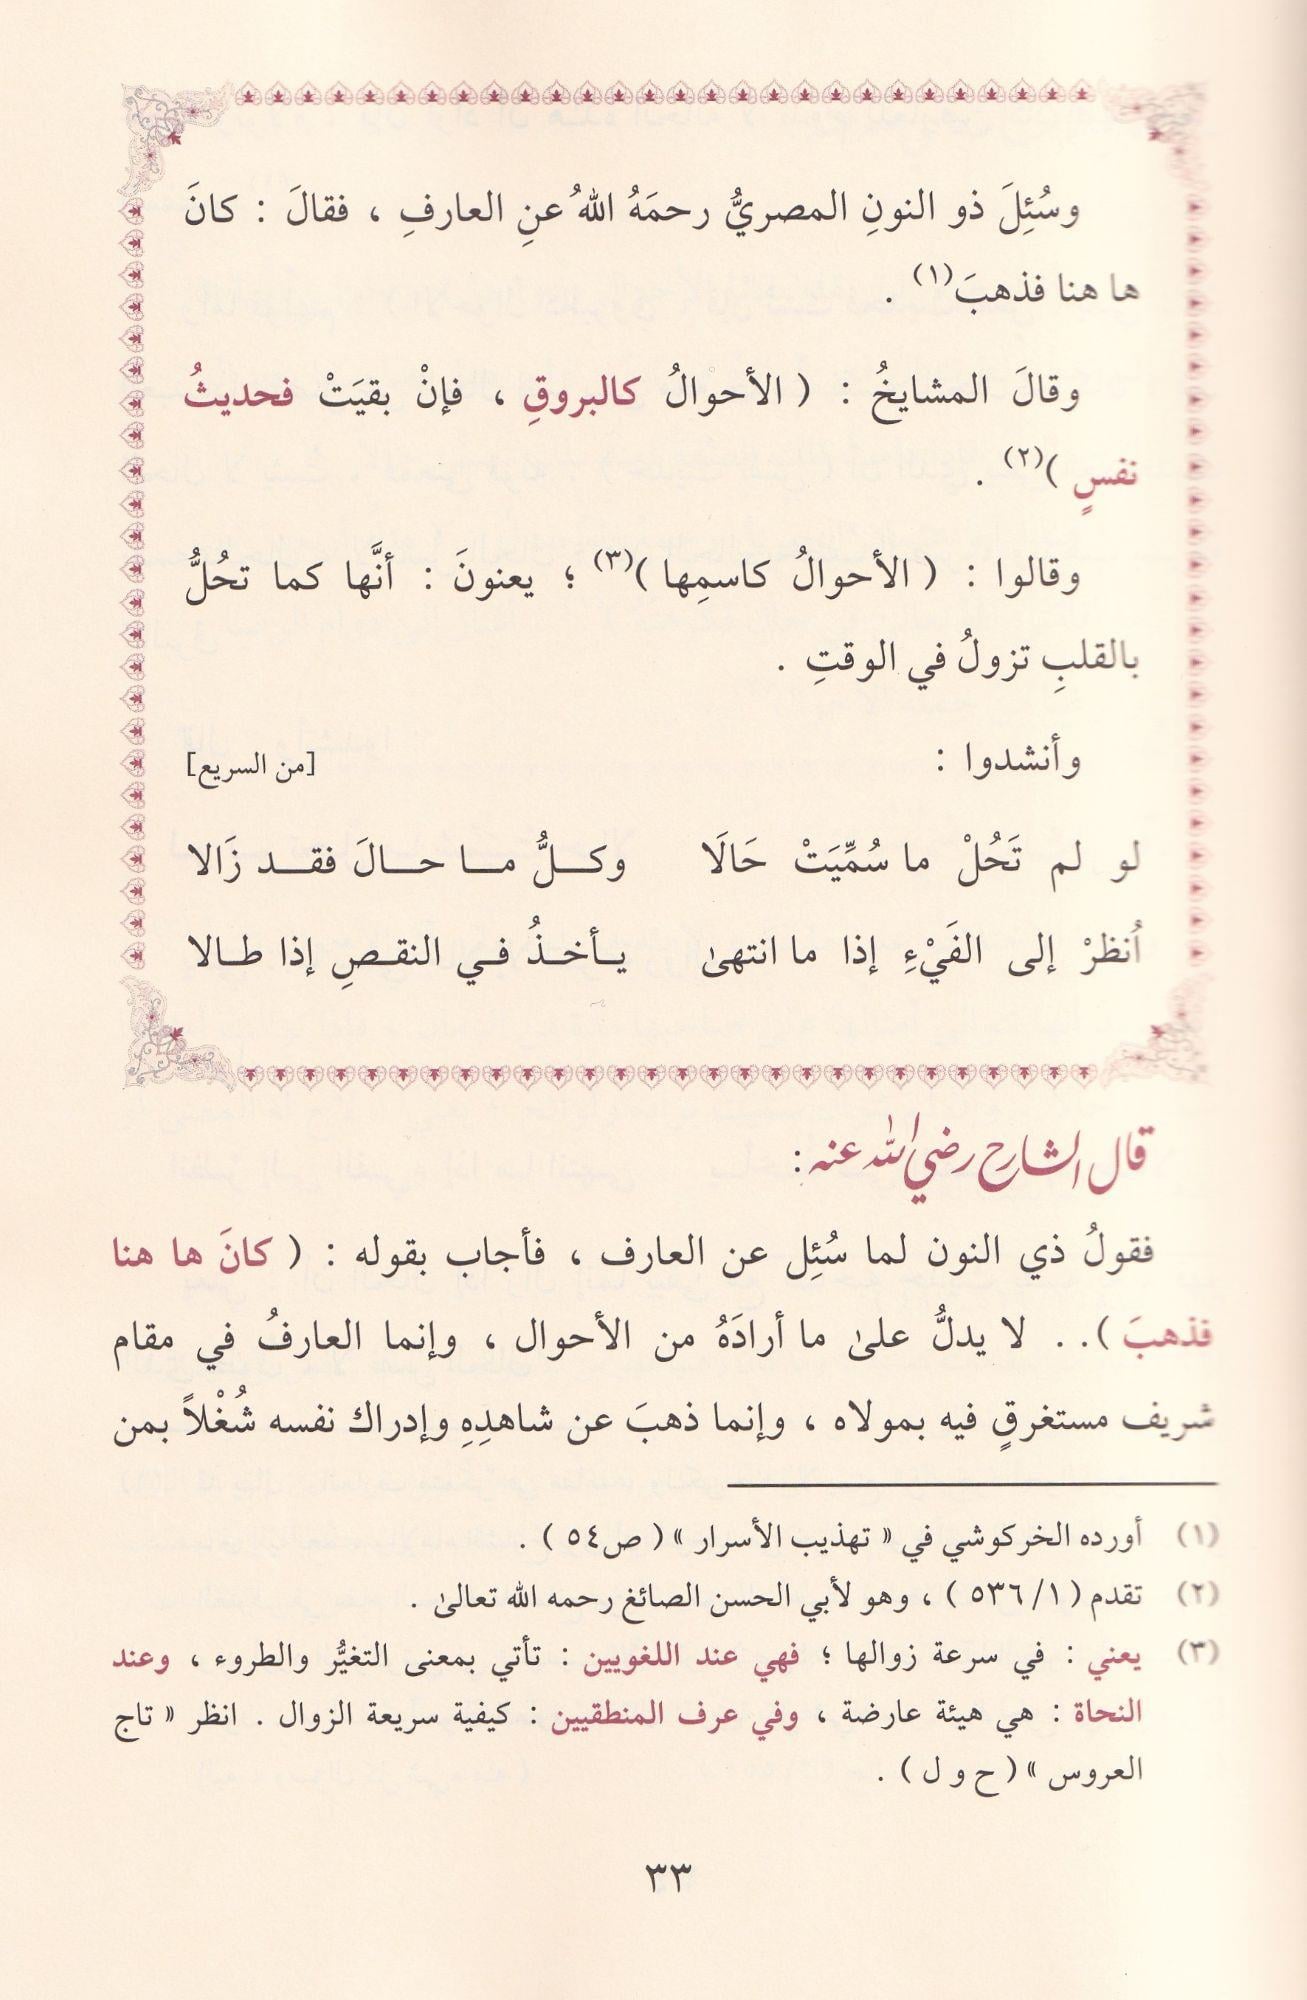 وسُئِلَ ذو النونِ المصريُّ رحمَهُ اللهُ عنِ العارفِ ، فقالَ : كانَ
ها هنا فذهبَ(١) .
وقالَ المشايخُ : ( الأحوالُ كالبروقِ ، فإنْ بقيَتْ فحديثُ
نفسٍ )(٢) .
وقالوا : ( الأحوالُ كاسمِها )(٣) ؛ يعنونَ : أنَّها كما تحُلُّ
بالقلبِ تزولُ في الوقتِ .
وأنشدوا : [من السريع]
لو لم تَحُلْ ما سُمِّيَتْ حَالَا وكلُّ ما حالَ فقد زَالا
اُنظرْ إلى الفَيْءِ إذا ما انتهىٰ يأخذُ في النقصِ إذا طالا
قال الشارح رضي الله عنه :
فقولُ ذي النون لما سُئِل عن العارف ، فأجاب بقوله : ( كانَ ها هنا
فذهبَ ) . . لا يدلُّ علىٰ ما أرادَهُ من الأحوال ، وإنما العارفُ في مقام
شريف مستغرقٍ فيه بمولاه ، وإنما ذهبَ عن شاهدِهِ وإدراك نفسه شُغْلاً بمن
(١) أورده الخركوشي في « تهذيب الأسرار » ( ص٥٤ ) .
(٢) تقدم ( ٥٣٦/١ ) ، وهو لأبي الحسن الصائغ رحمه الله تعالىٰ .
(٣) يعني : في سرعة زوالها ؛ فهي عند اللغويين : تأتي بمعنى التغيُّر والطروء ، وعند
النحاة : هي هيئة عارضة ، وفي عرف المنطقيين : كيفية سريعة الزوال . انظر « تاج
العروس » ( ح و ل ) .
٣٣